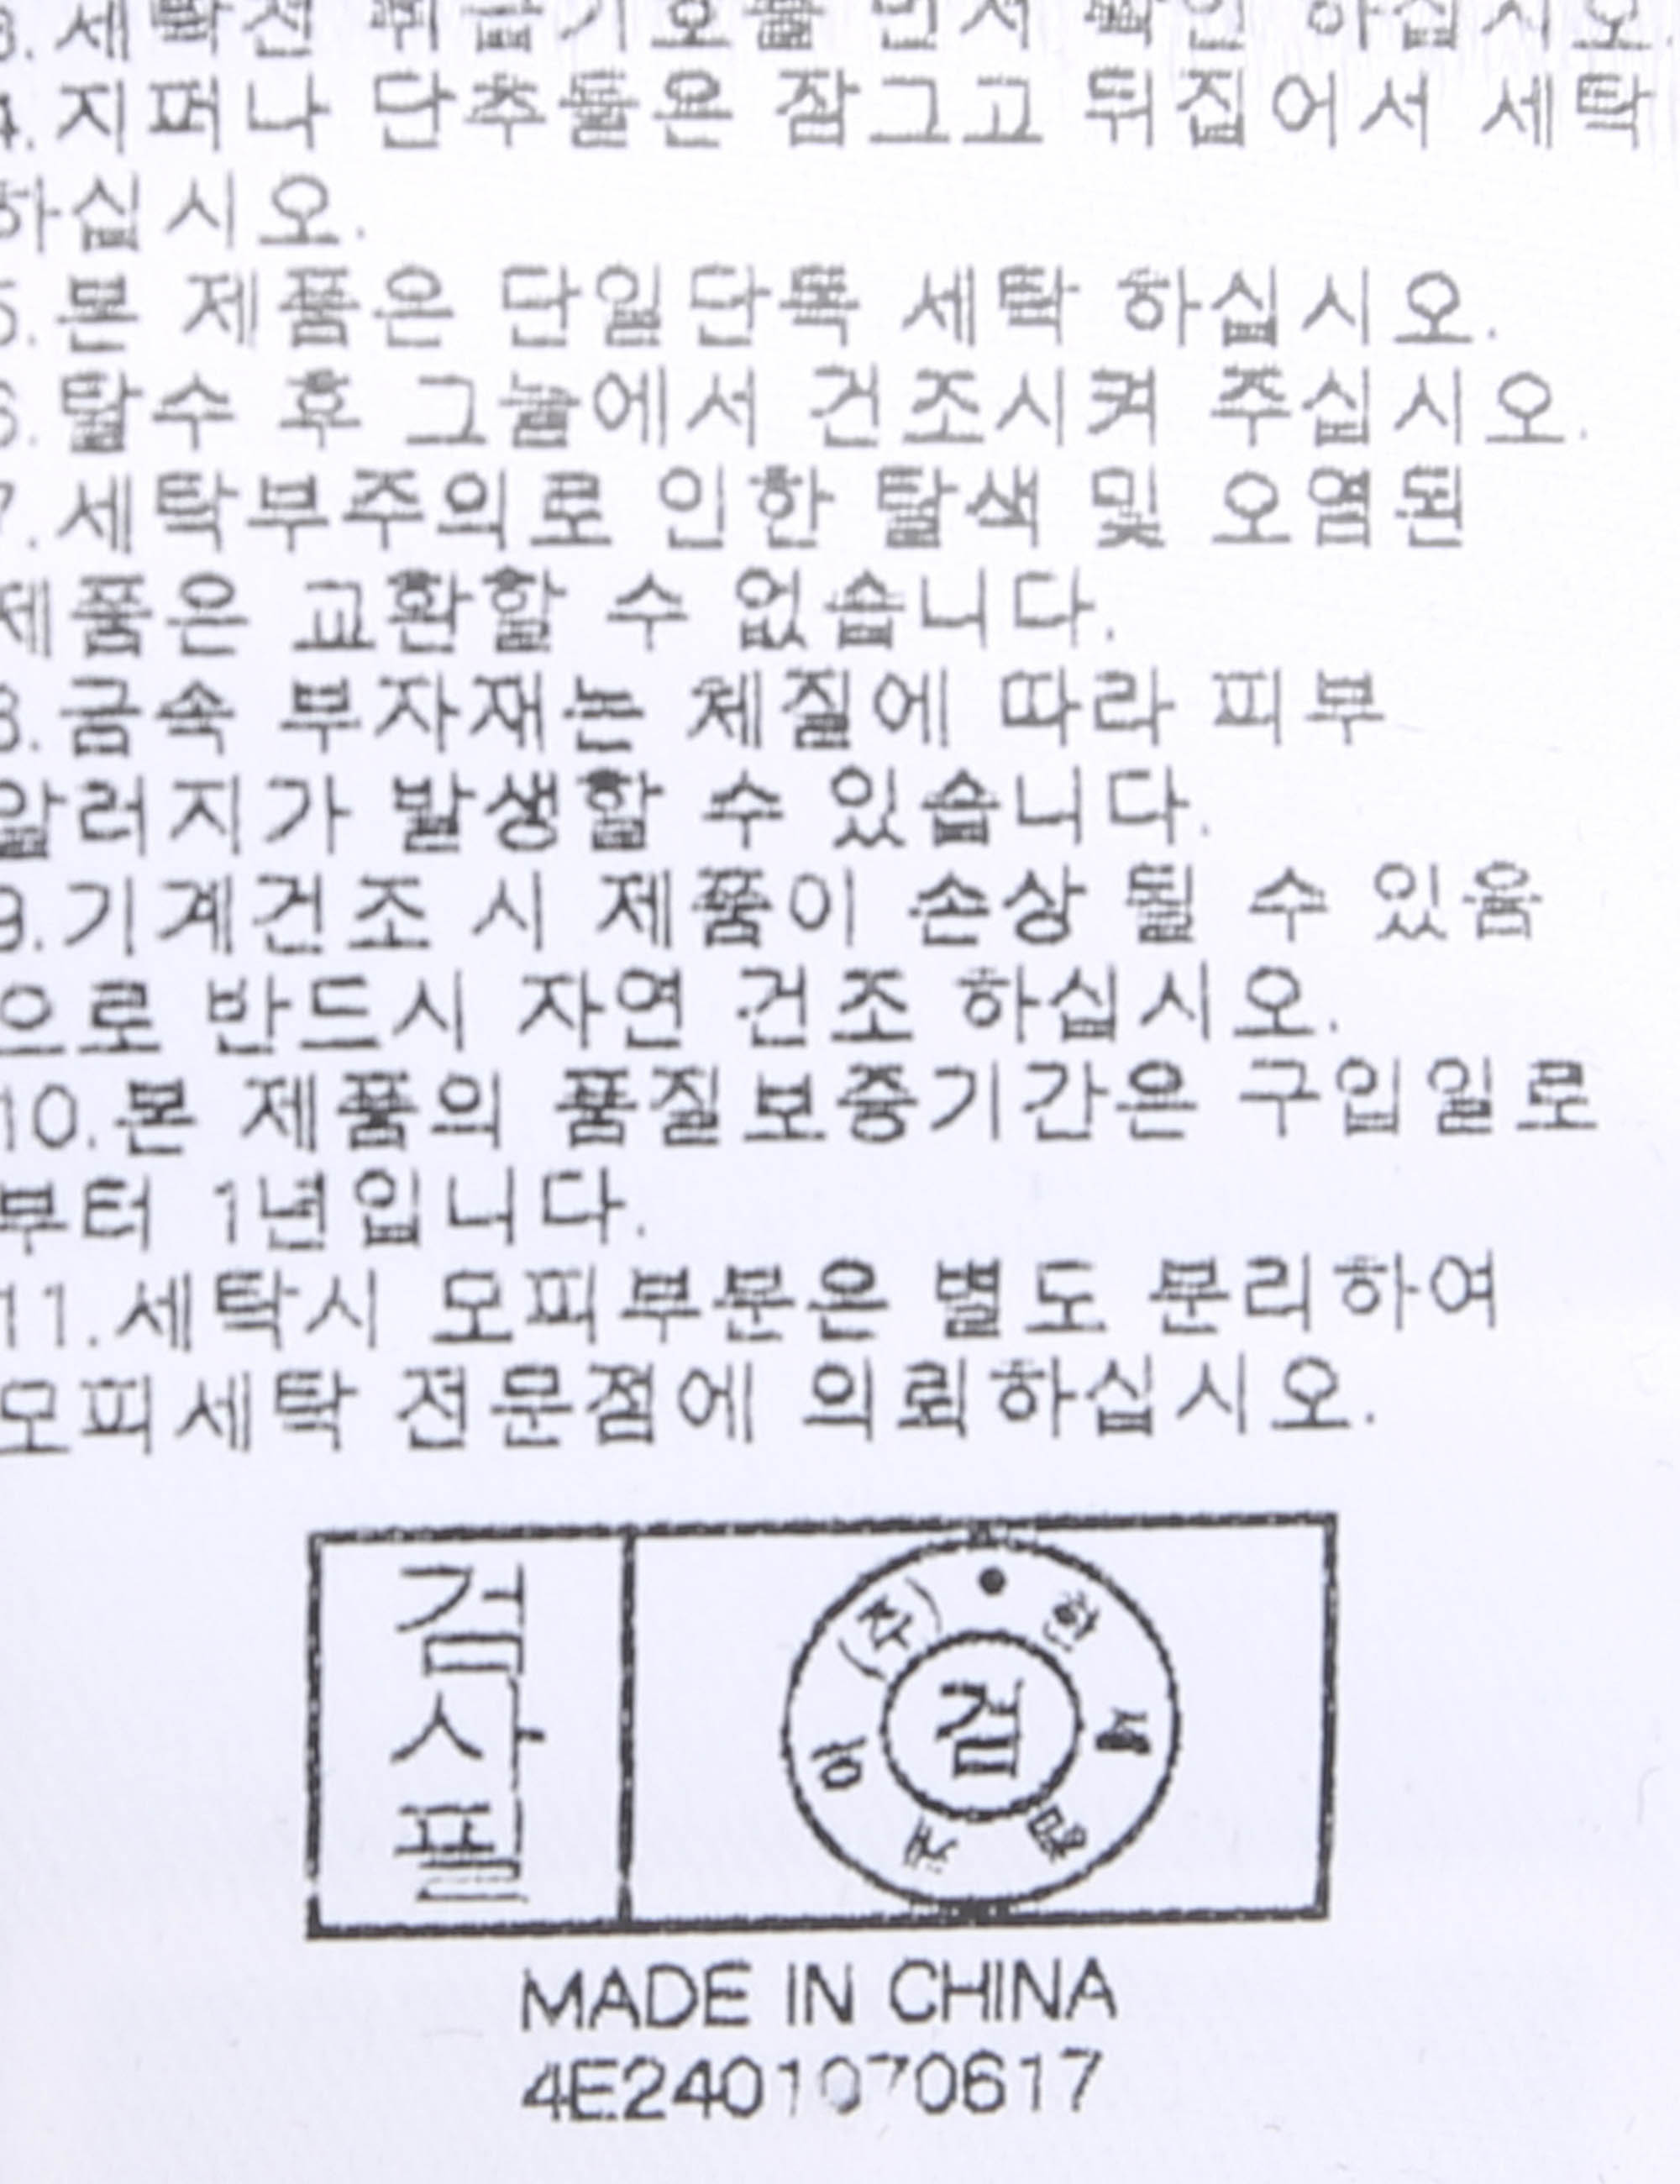 3.세탁전 취급기호를 먼저 확인 하십시오.
4.지퍼나 단추들은 잠그고 뒤집어서 세탁
하십시오.
5.본 제품은 단일단독 세탁 하십시오.
6.탈수 후 그늘에서 건조시켜 주십시오.
7.세탁부주의로 인한 탈색 및 오염된
제품은 교환할 수 없습니다.
8.금속 부자재는 체질에 따라 피부
알러지가 발생할 수 있습니다.
9.기계건조 시 제품이 손상 될 수 있음
으로 반드시 자연 건조 하십시오.
10.본 제품의 품질보증기간은 구입일로
부터 1년입니다.
11.세탁시 모피부분은 별도 분리하여
모피세탁 전문점에 의뢰하십시오.
검사필
(주)한세엠케이
검
MADE IN CHINA
4E2401070617